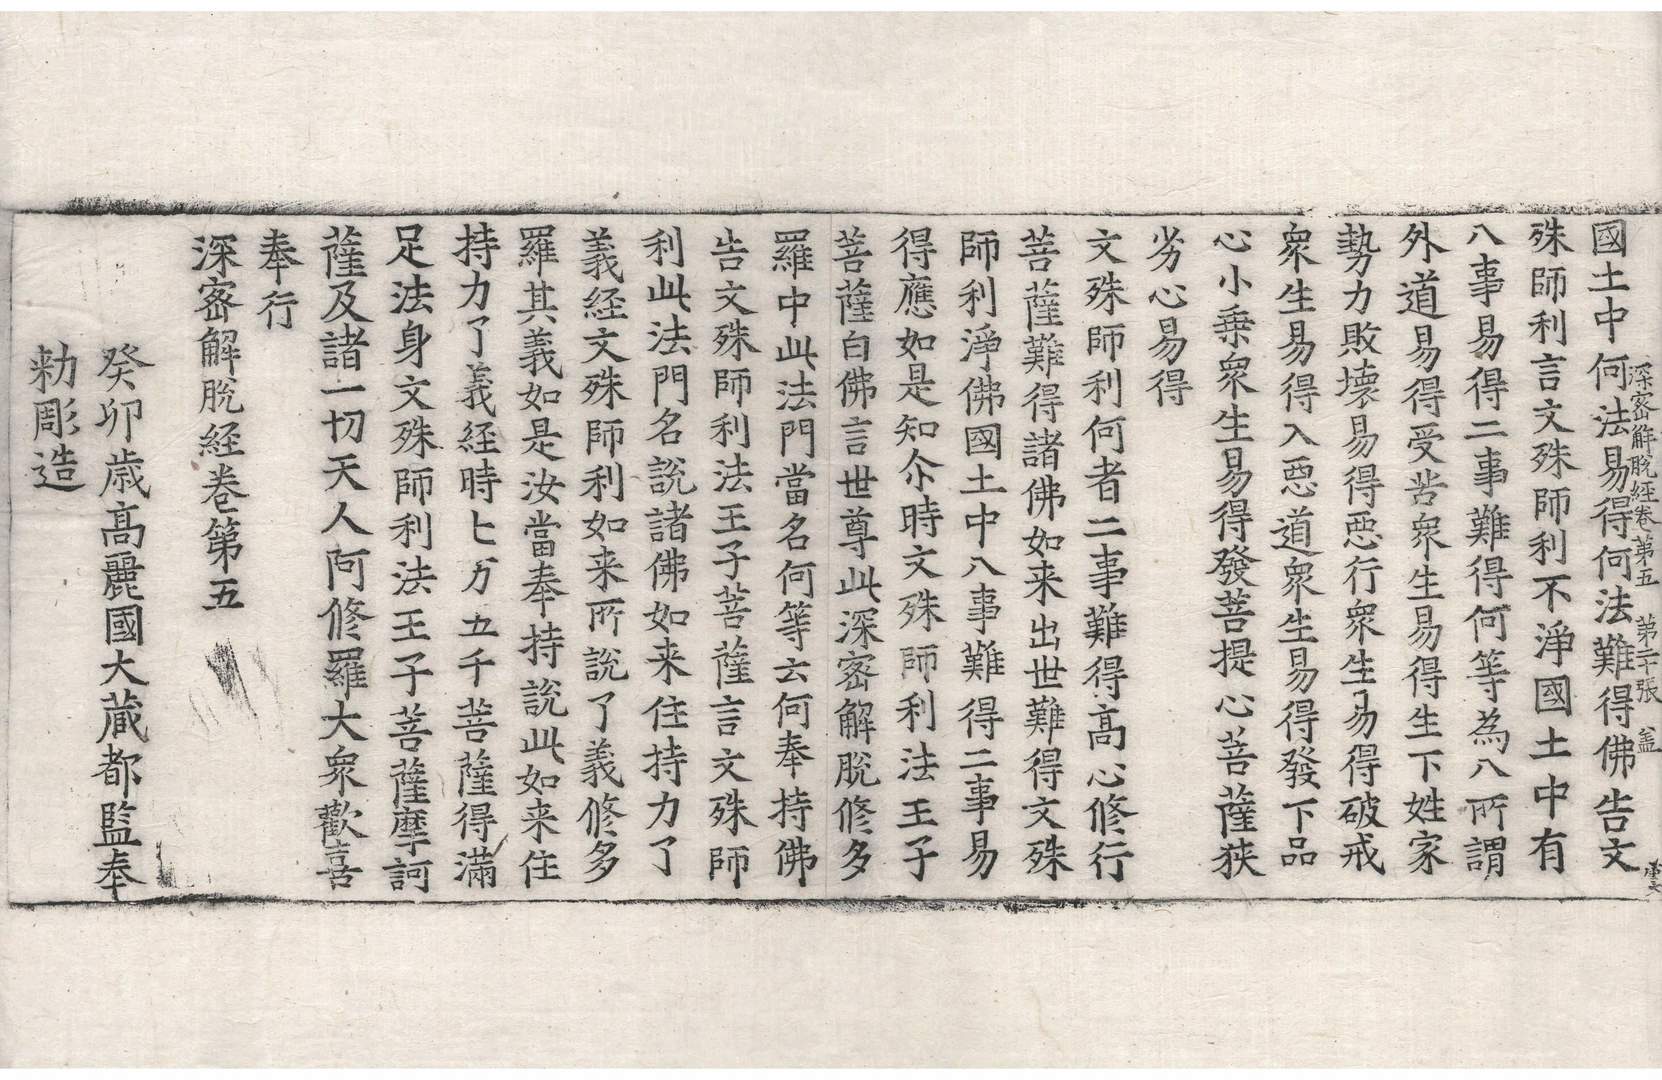 深密解脫経卷第五 第二十張 盖
國土中何法易得何法難得佛告文
殊師利言文殊師利不淨國土中有
八事易得二事難得何等為八所謂
外道易得受苦衆生易得生下姓家
勢力敗壞易得惡行衆生易得破戒
衆生易得入惡道衆生易得發下品
心小乗衆生易得發菩提心菩薩狹
劣心易得
文殊師利何者二事難得高心修行
菩薩難得諸佛如来出世難得文殊
師利淨佛國土中八事難得二事易
得應如是知尒時文殊師利法王子
菩薩白佛言世尊此深密解脫修多
羅中此法門當名何等云何奉持佛
告文殊師利法王子菩薩言文殊師
利此法門名說諸佛如来住持力了
義経文殊師利如来所說了義修多
羅其義如是汝當奉持說此如来住
持力了義経時七万五千菩薩得滿
足法身文殊師利法王子菩薩摩訶
薩及諸一切天人阿修羅大衆歡喜
奉行
深密解脫経卷第五
癸卯歳高麗國大蔵都監奉
勑彫造